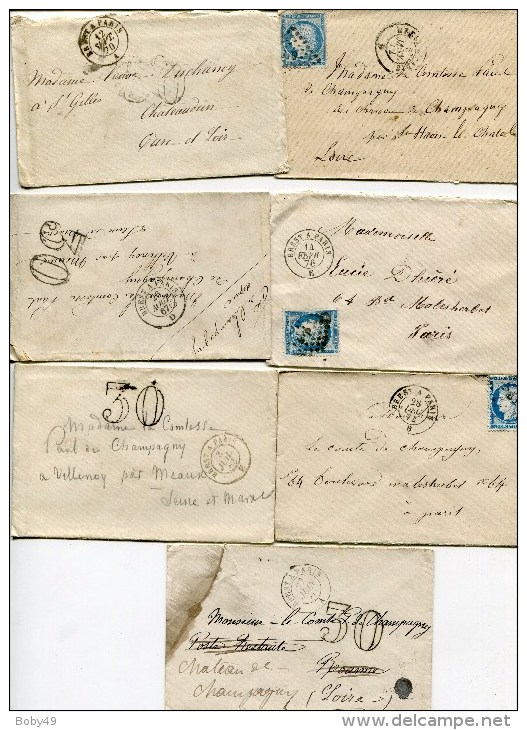 BREST A PARIS
12
70
A
Madame
à St Gilles
Chateaudun
Eure et Loir
30
Madame la Comtesse Paul
de Champagny
au chateau de Champagny
par St Haon le Chatel
Loire
30
Madame la Comtesse Paul
de Champagny
à Villenoy par Meaux
BREST A PARIS
67
D
BREST A PARIS
14
FEVR
76
B
Mademoiselle
Lucie Dhéré
64 Bd Malesherbes
Paris
30
BREST A PARIS
Madame la Comtesse
Paul de Champagny
a Villenoy par Meaux
Seine et Marne
BREST A PARIS
28
B
le comte de champagny,
64 boulevard malesherbes no 64
à paris
BREST A PARIS
30
Monsieur le Comte P. de Champagny
Poste Restante
Chateau de
Roanne
Champagny
(Loire)
Boby49
www.delcampe.net